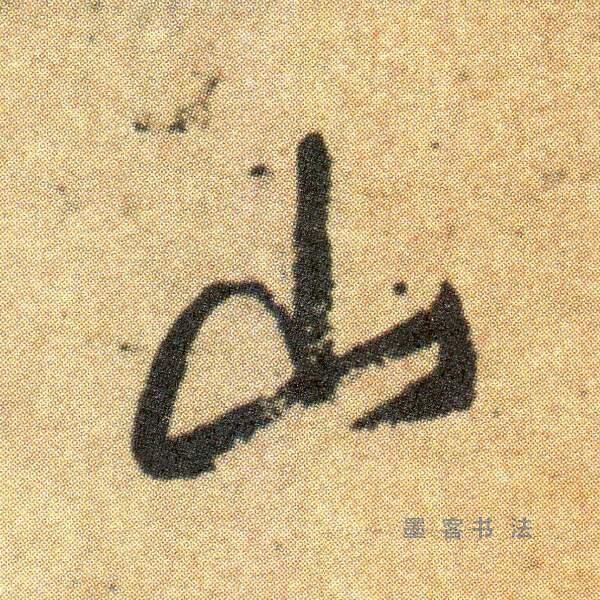 山
墨客书法